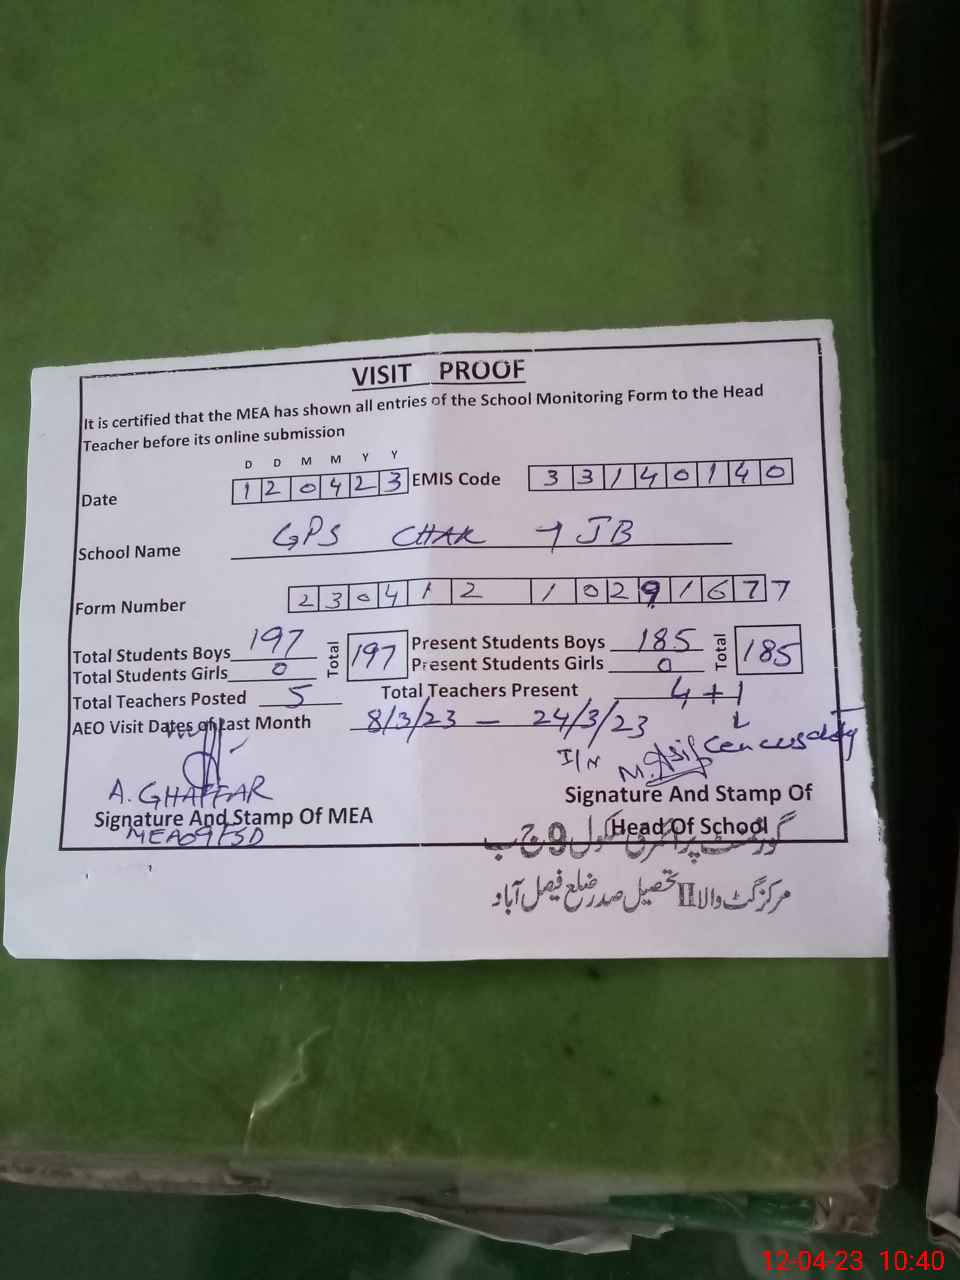 VISIT PROOF
It is certified that the MEA has shown all entries of the School Monitoring Form to the Head
Teacher before its online submission
D D M M Y Y
Date 120423 EMIS Code 33140140
School Name GPS CHAK JB
Form Number 230412 1029167 7
Total Students Boys 197 Total 197 Present Students Boys 185 Total 185
Total Students Girls 0 Present Students Girls 0
Total Teachers Posted 5 Total Teachers Present 4 + 1
AEO Visit Dates of Last Month 8/3/23 – 24/3/23
I/N M. Asif Cencus duty
A. GHAFFAR
Signature And Stamp Of MEA Signature And Stamp Of
MEA09FSD Head Of School
گورنمنٹ پرائمری سکول 9 ج ب
مرکز گٹ والا II تحصیل صدر ضلع فیصل آباد
12-04-23 10:40